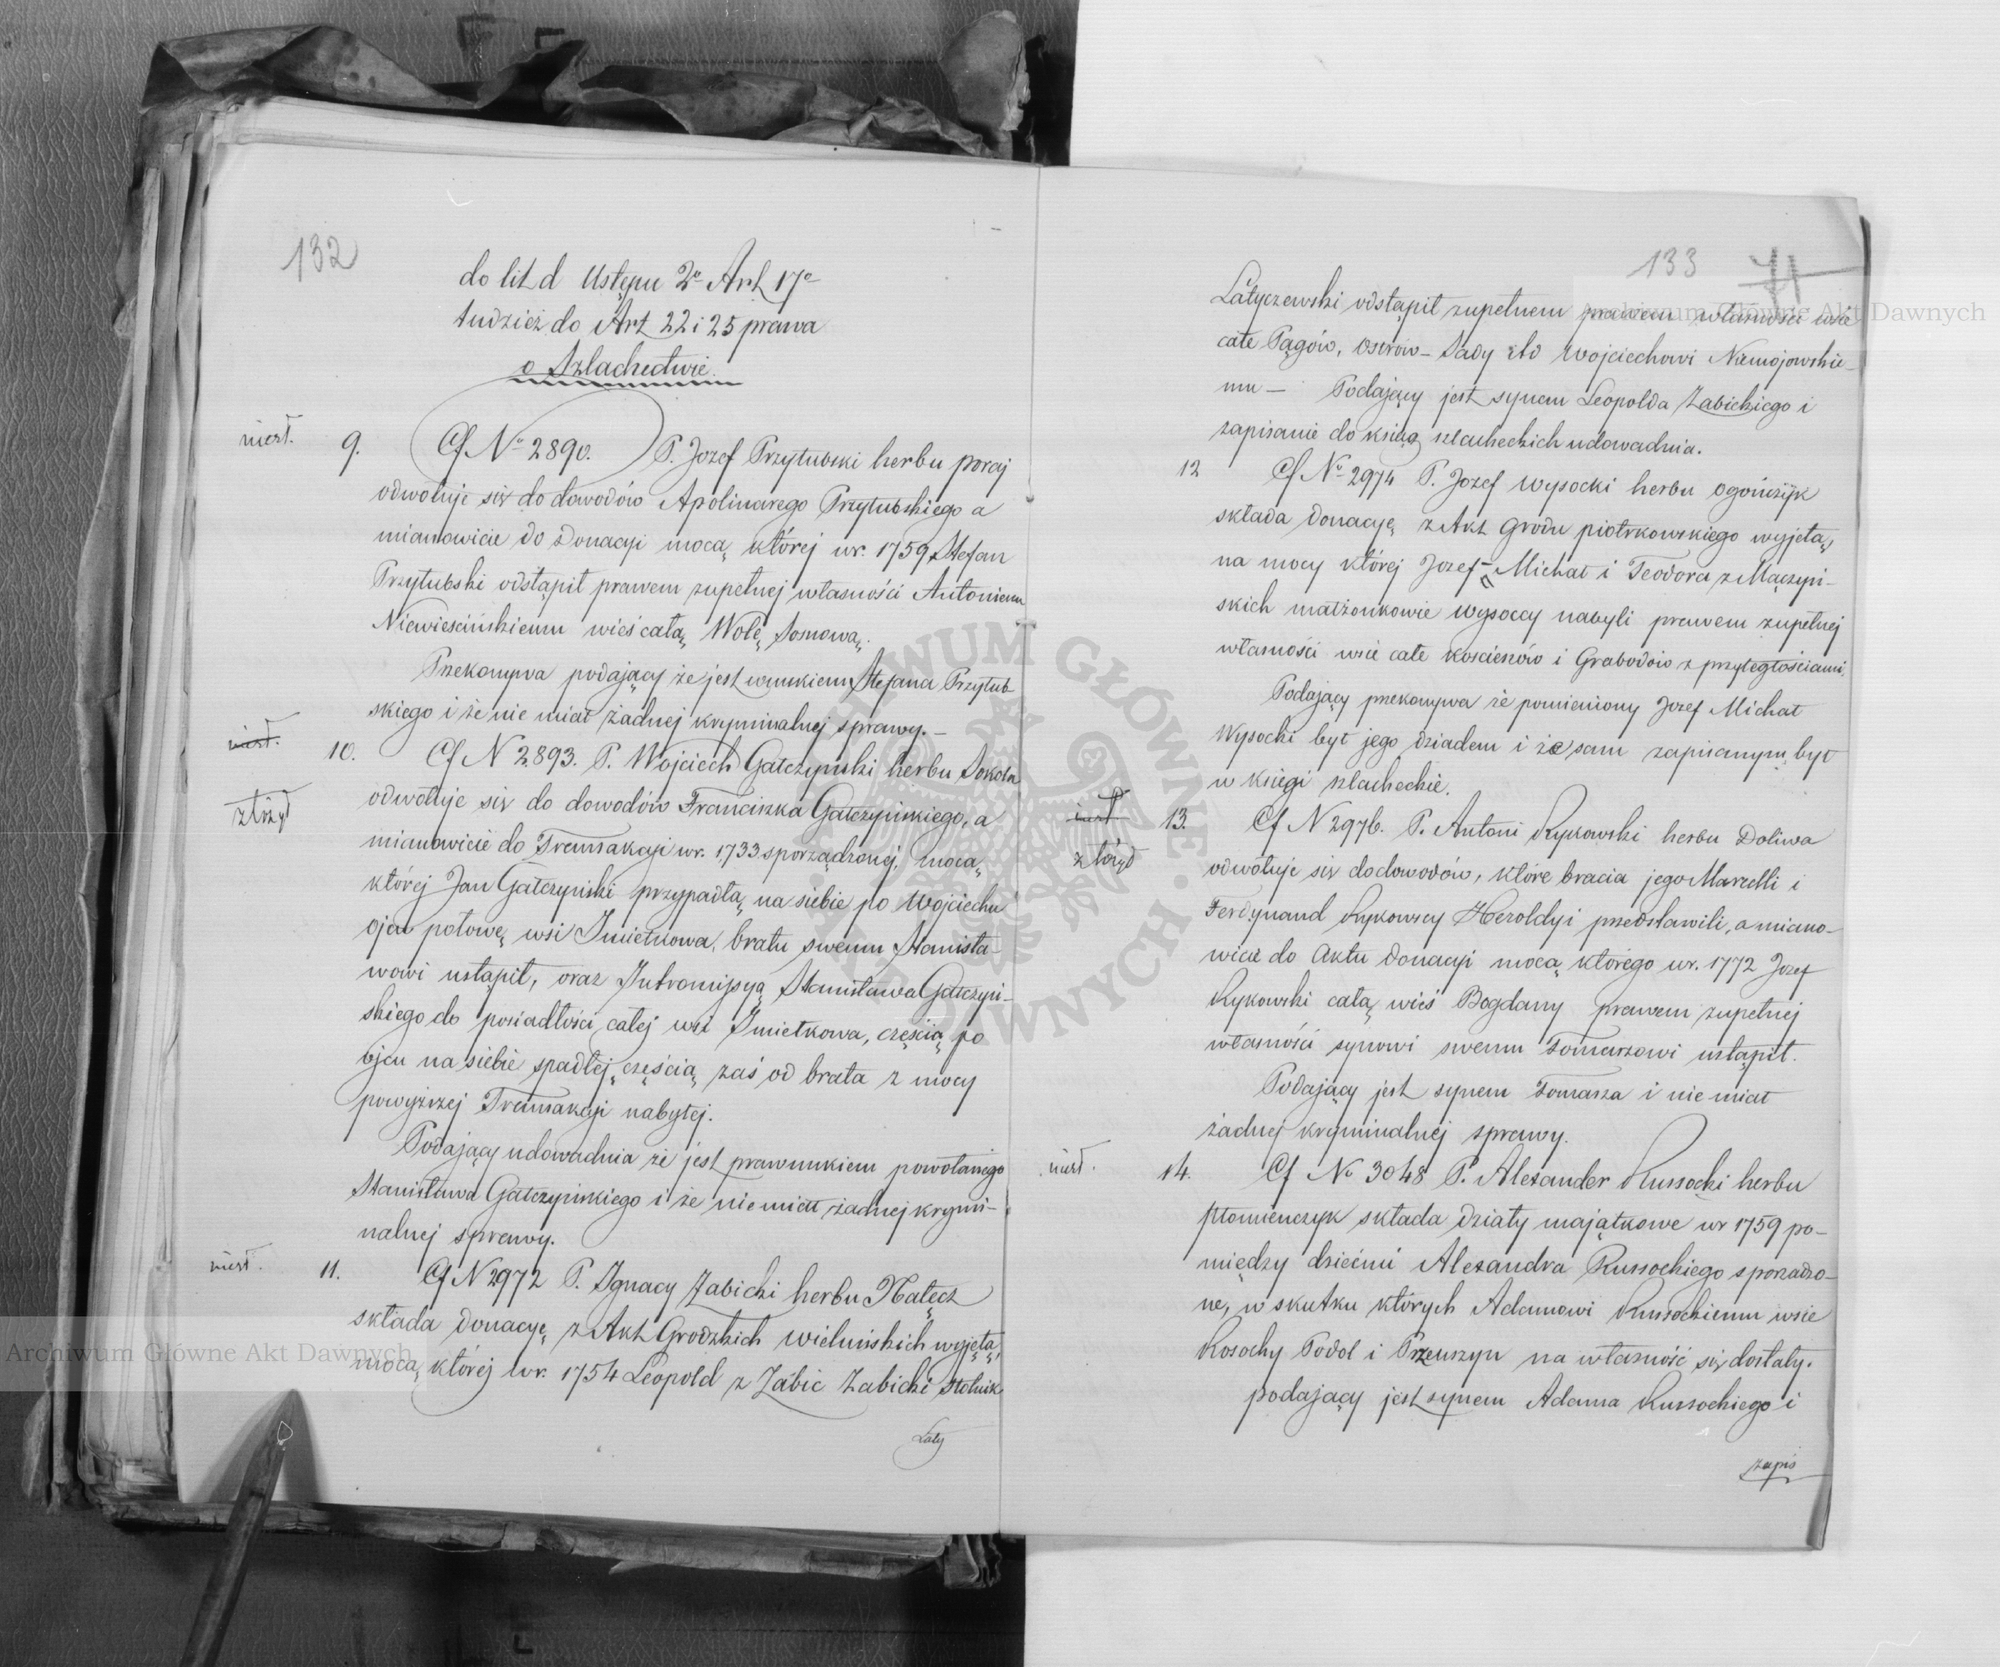 132
do lit d Ustępu 2º Art 17º
tudzież do Art 22 i 25 prawa
o Szlachectwie.
9. Cf Nº 2890. P. Jozef Przyłubski herbu poraj
odwołuje się do dowodów Apolinarego Przyłubskiego a
mianowicie do Donacyi mocą której w r. 1759 Stefan
Przyłubski odstąpił prawem zupełnej własności Antoniemu
Niewieścińskiemu wieś całą Wolę Sosnową.
Przekonywa podający że jest wnukiem Stefana Przyłub
skiego i że nie miał żadnej kryminalnej sprawy. –
10. Cf N 2893. P. Wojciech Gałczyński herbu Sokola
odwołuje się do dowodów Franciszka Gałczyńskiego, a
mianowicie do Transakcji w r. 1733 sporządzonej, mocą
której Jan Gałczyński przypadłą na siebie po Wojciechu
ojcu połowę wsi Imiełkowa, bratu swemu Stanisła-
wowi ustąpił, oraz Intromissyą Stanisława Gałczyń-
skiego do posiadłości całej wsi Imiełkowa, częścią po
ojcu na siebie spadłej, częścią zaś od brata z mocy
powyższej Transakcji nabytej.
Podający udowadnia że jest prawnukiem powołanego
Stanisława Gałczyńskiego i że nie miał żadnej krymi-
nalnej sprawy.
11. Cf N 2972 P. Ignacy Żabicki herbu Nałęcz
składa donacyę z Akt Grodzkich wieluńskich wyjętą,
mocą której w r. 1754 Leopold z Żabic Żabicki Stolnik
Laty
133
Latyczewski odstąpił zupełnem prawem własności wsie
całe Pągów, Ostrów – Sady etc Wojciechowi Niemojowskie-
mu – Podający jest synem Leopolda Żabickiego i
zapisanie do ksiąg szlacheckich udowadnia.
12 Cf Nº 2974 P. Jozef Wysocki herbu Ogończyk
składa Donacyę z Akt Grodu piotrkowskiego wyjętą,
na mocy której Jozef – Michał i Teodora z Mączyń-
skich małżonkowie Wysoccy nabyli prawem zupełnej
własności wsie całe Koscierzów i Grabodów z przyległościami.
Podający przekonywa że pomieniony Jozef Michał
Wysocki był jego dziadem i że sam zapisanym był
w księgi szlacheckie.
złożył
13. Cf N 2976. P. Antoni Rykowski herbu Doliwa
odwołuje się do dowodów, które bracia jego Marcelli i
Ferdynand Rykowscy Heroldyi przedstawili, a miano-
wicie do Aktu Donacyi mocą którego w r. 1772 Jozef
Rykowski całą wieś Bogdany prawem zupełnej
własności synowi swemu Tomaszowi ustąpił.
Podający jest synem Tomasza i nie miał
żadnej kryminalnej sprawy.
14. Cf Nº 3048 P. Alexander Russocki herbu
płomieńczyk składa działy majątkowe w r 1759 po-
między dziećmi Alexandra Russockiego sporządzo-
ne, w skutku których Adamowi Russockiemu wsie
Kosochy Podol i Przeuszyn na własność się dostały.
podający jest synem Adama Russockiego i
zapis
Archiwum Główne Akt Dawnych
Archiwum Główne Akt Dawnych
ARCHIWUM GŁÓWNE AKT DAWNYCH